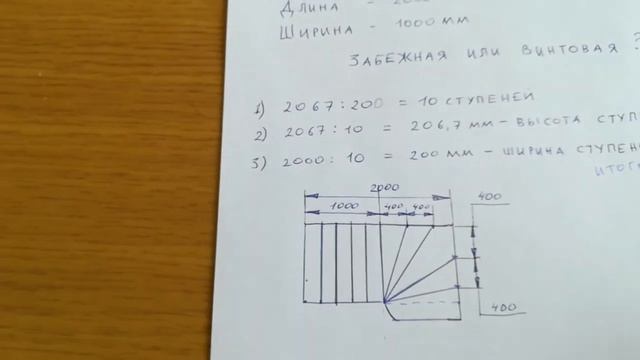 ДЛИНА -
ШИРИНА - 1000 мм
ЗАБЕЖНАЯ ИЛИ ВИНТОВАЯ ?
1) 2067 : 200 = 10 СТУПЕНЕЙ
2) 2067 : 10 = 206,7 мм - ВЫСОТА
3) 2000 : 10 = 200 мм - ШИРИНА
2000
400
1000 400 400
400